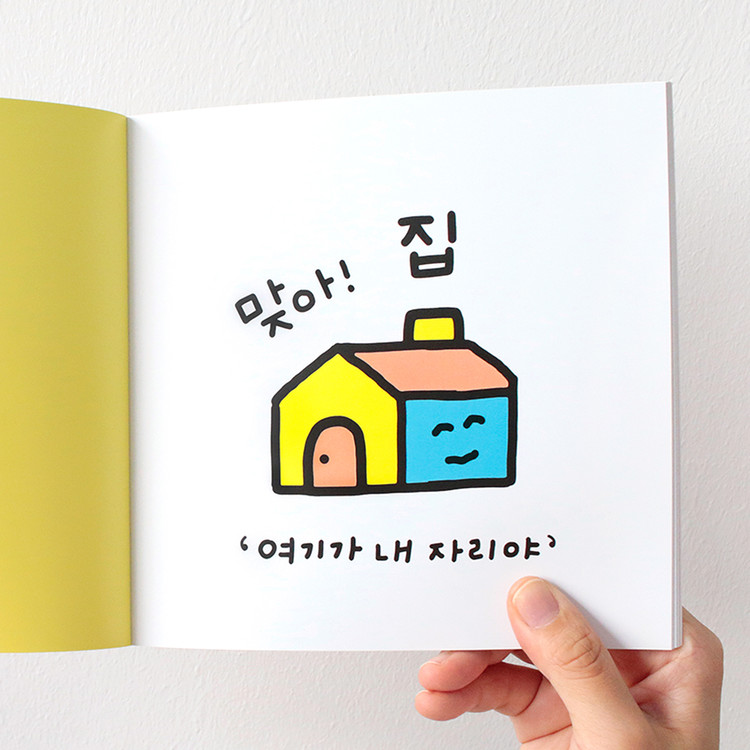 집
맞아!
‘여기가 내 자리야’